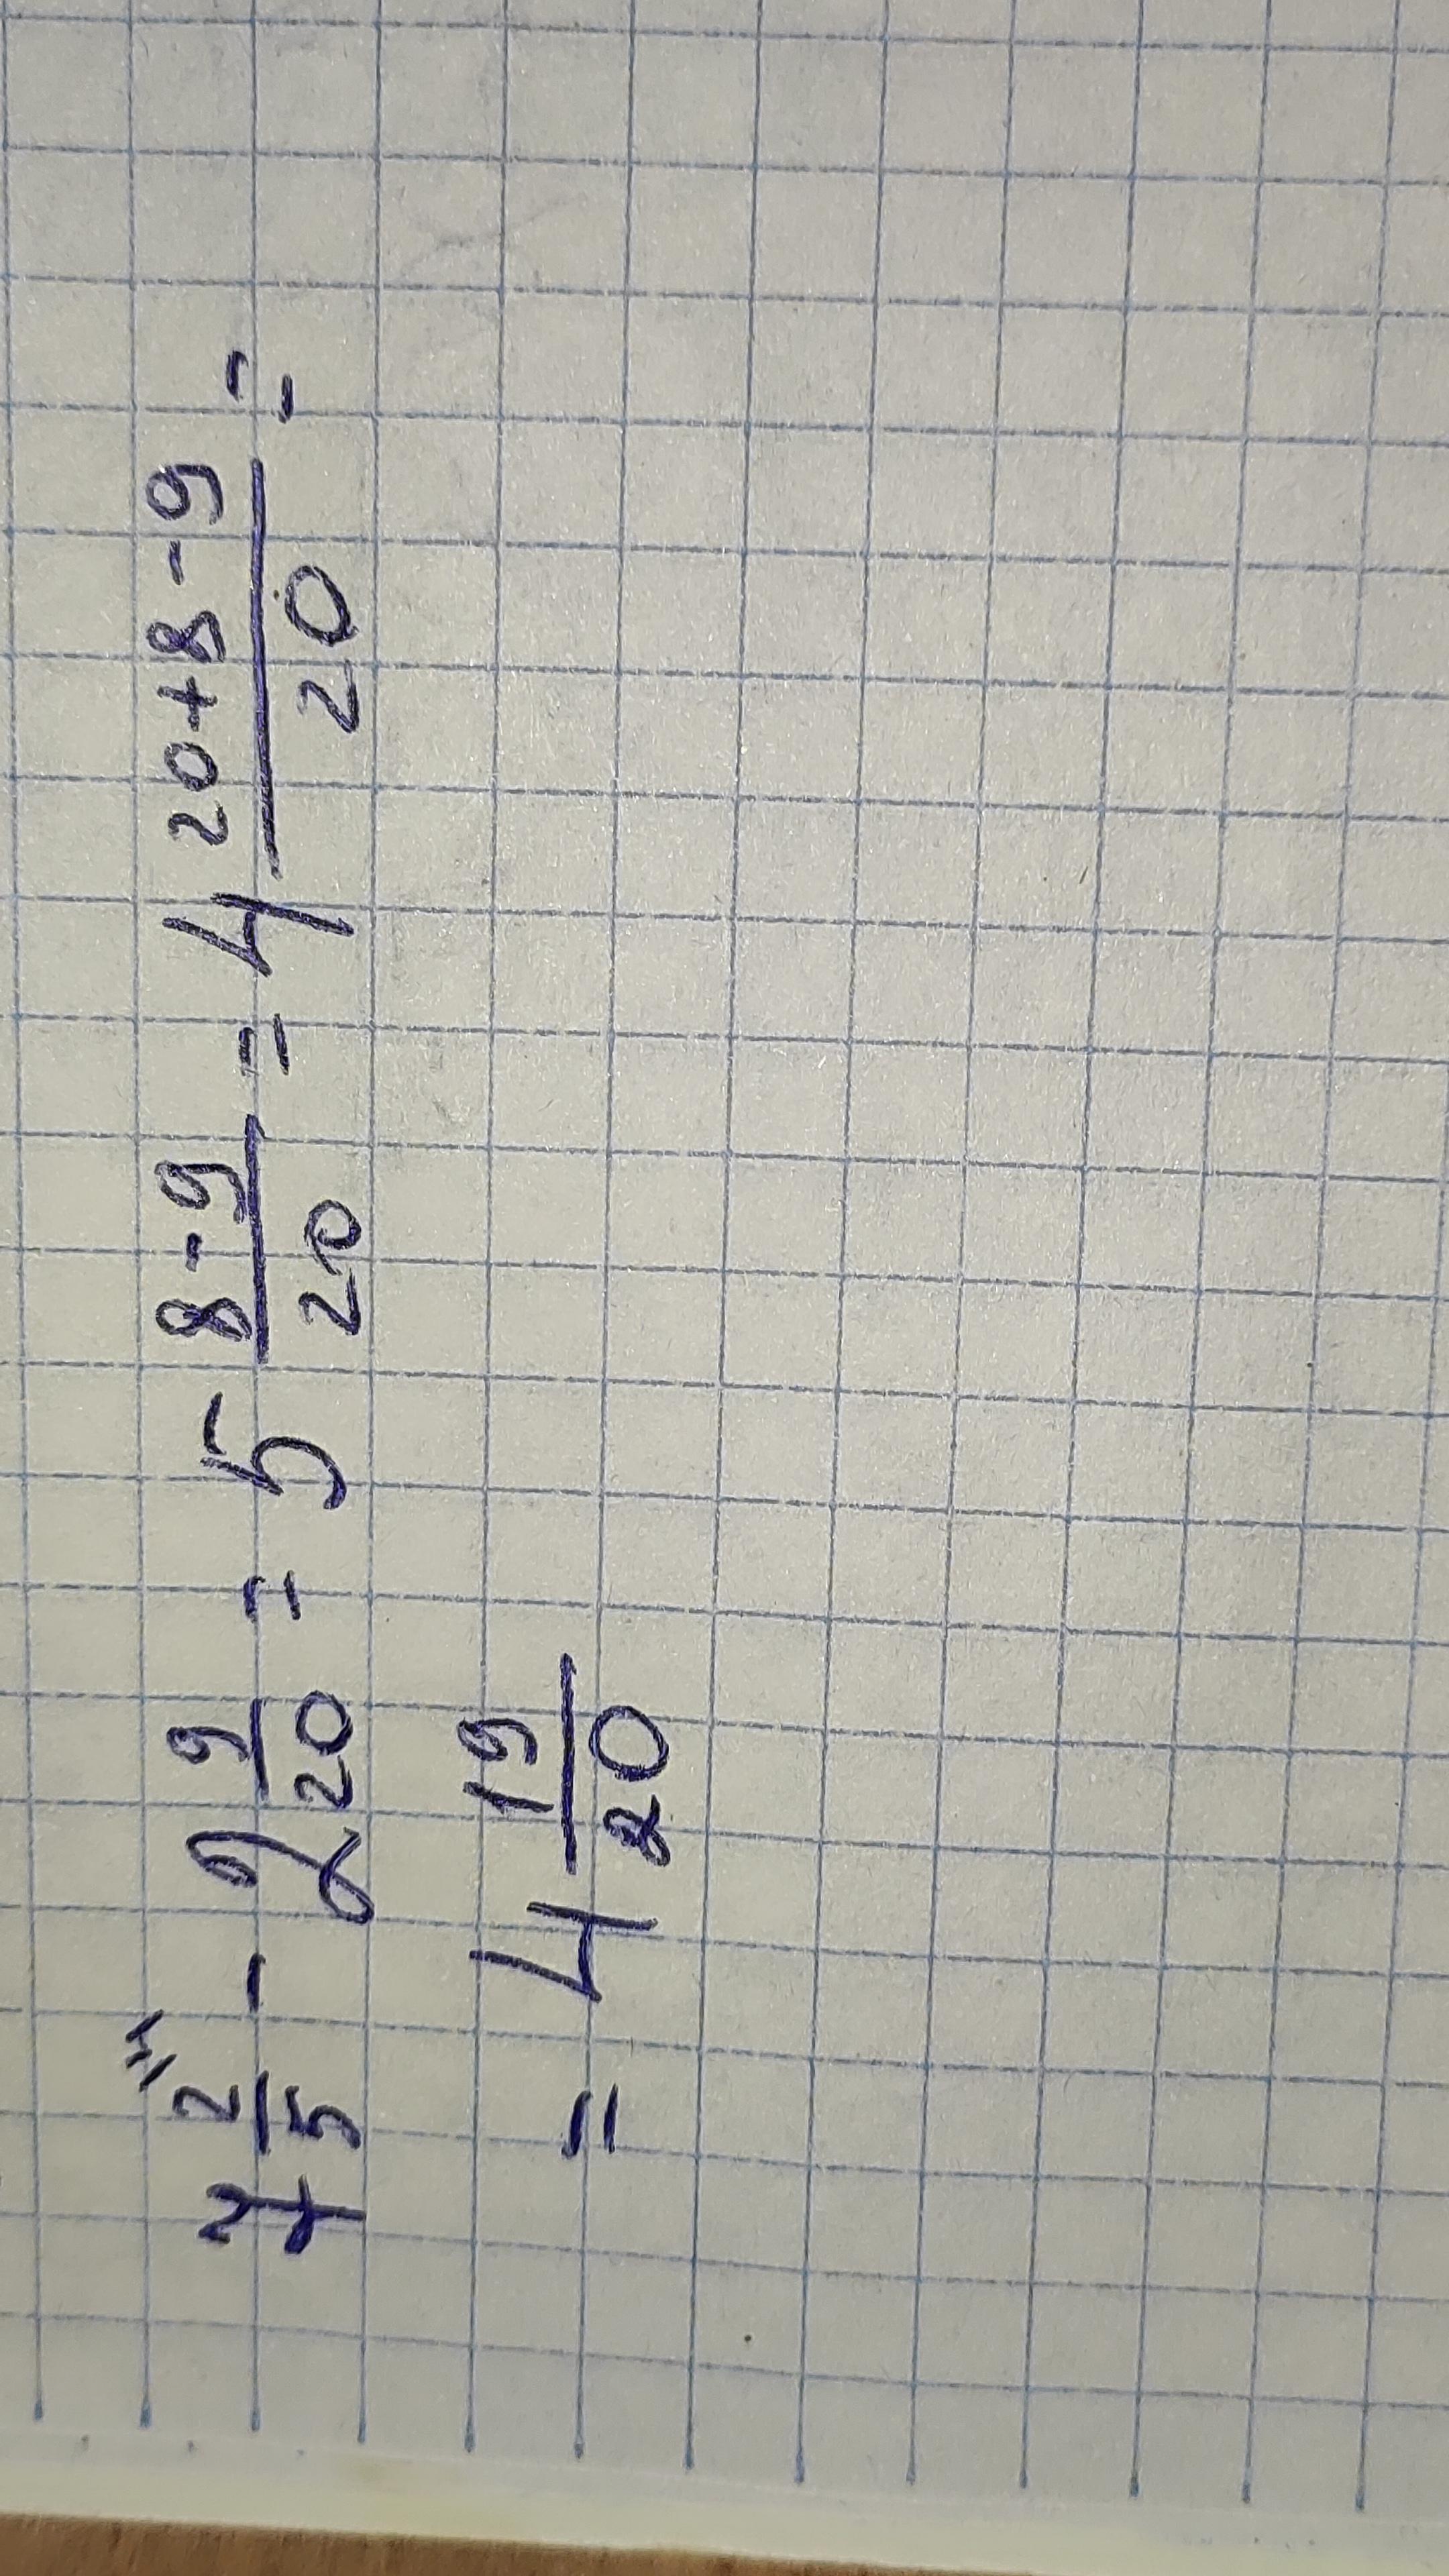 7 2/5 ⁴⁄ - 2 9/20 = 5 (8-9)/20 = 4 (20+8-9)/20 =
= 4 19/20